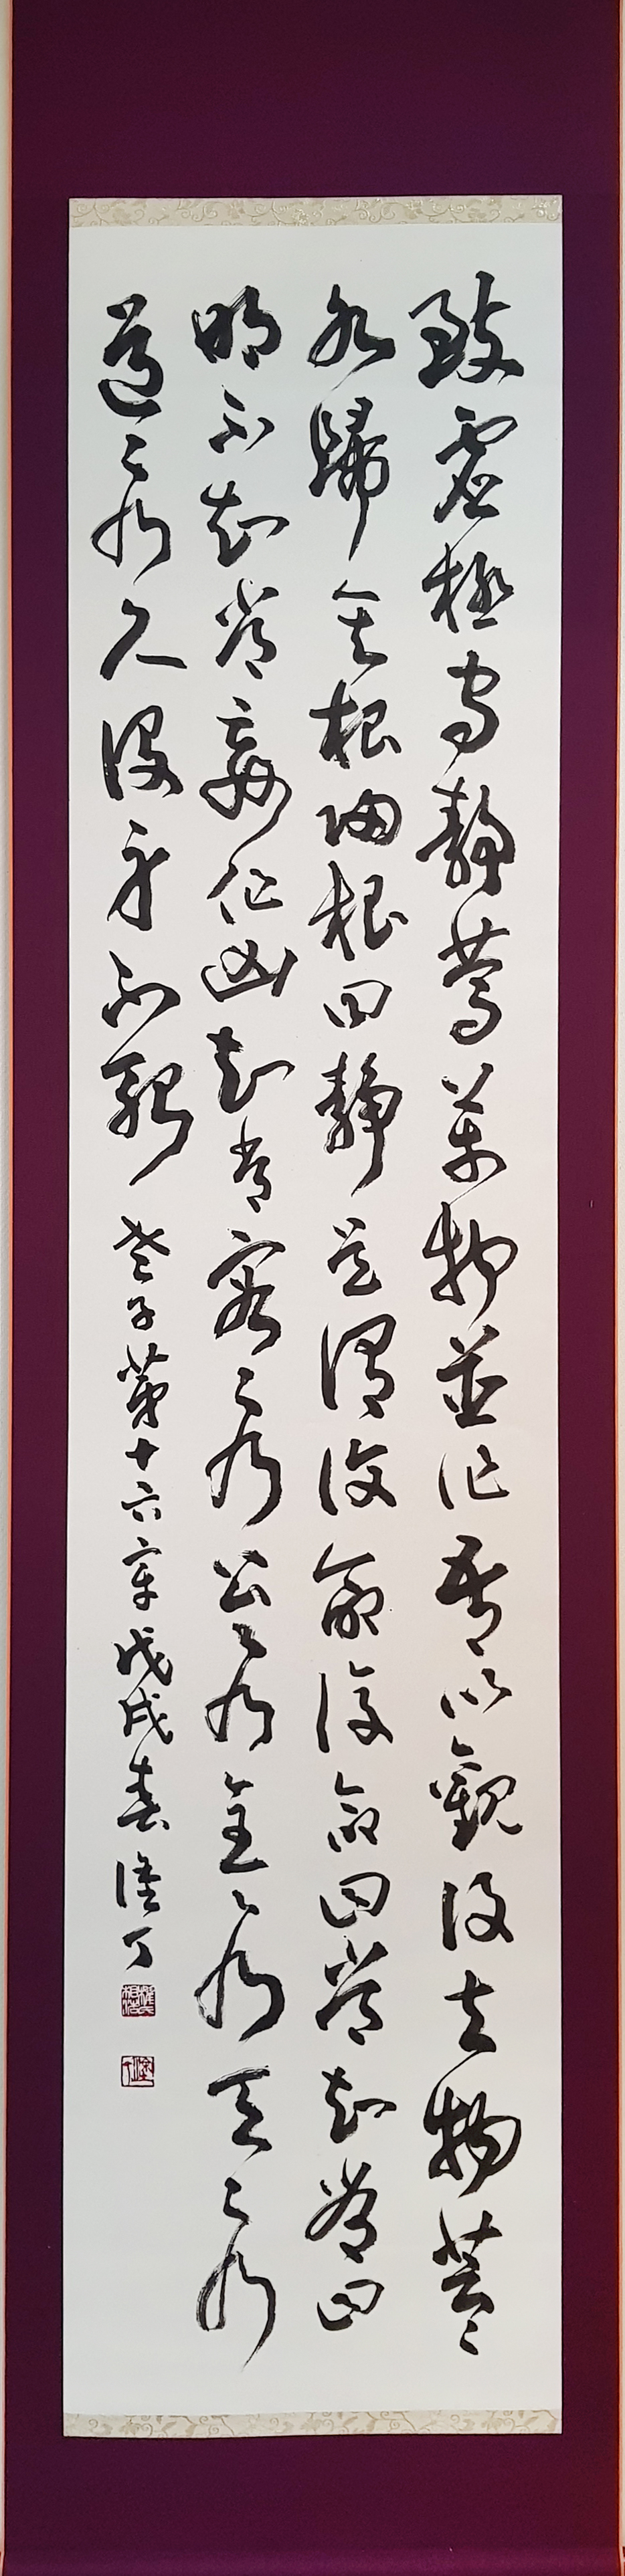 致虚極守靜篤萬物並作吾以觀復夫物芸々
各歸其根歸根曰靜是謂復命復命曰常知常曰
明不知常妄作凶知常容々乃公々乃全々乃天々乃
道々乃久没身不殆 老子第十六章 戊戌春